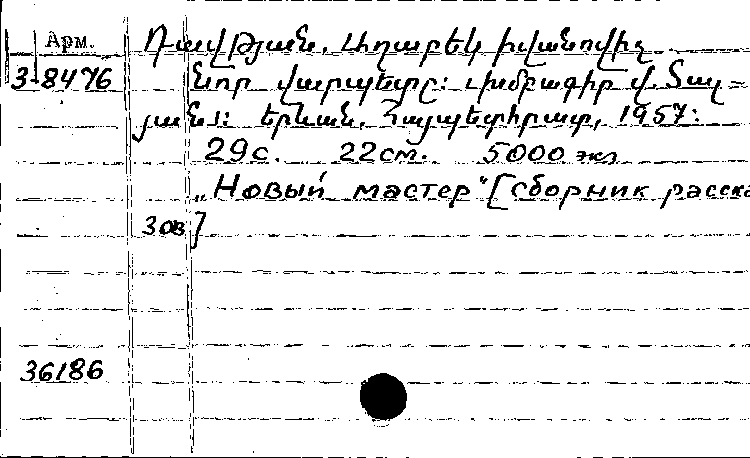 Арм.
Դավթյան, Աղաբեկ Իվանովիչ
3-8476
Նոր վարպետը: Խմբագիր Վ. Դավ-
յան: Երևան, Հայպետհրատ, 1957:
29с. 22см. 5000 экз
„Новый мастер" [Сборник расска
зов]
36186